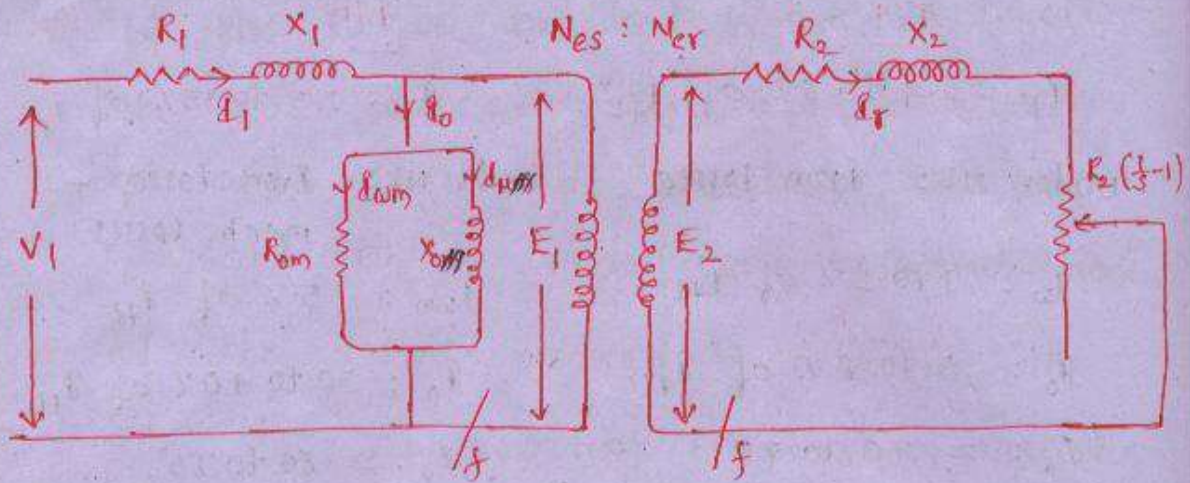 R₁ X₁ Nes : Ner R₂ X₂
I₁ I₀ Ir
Iwm Iμ
R₂(1/s-1)
V₁ Rom Xo E₁ E₂
f f